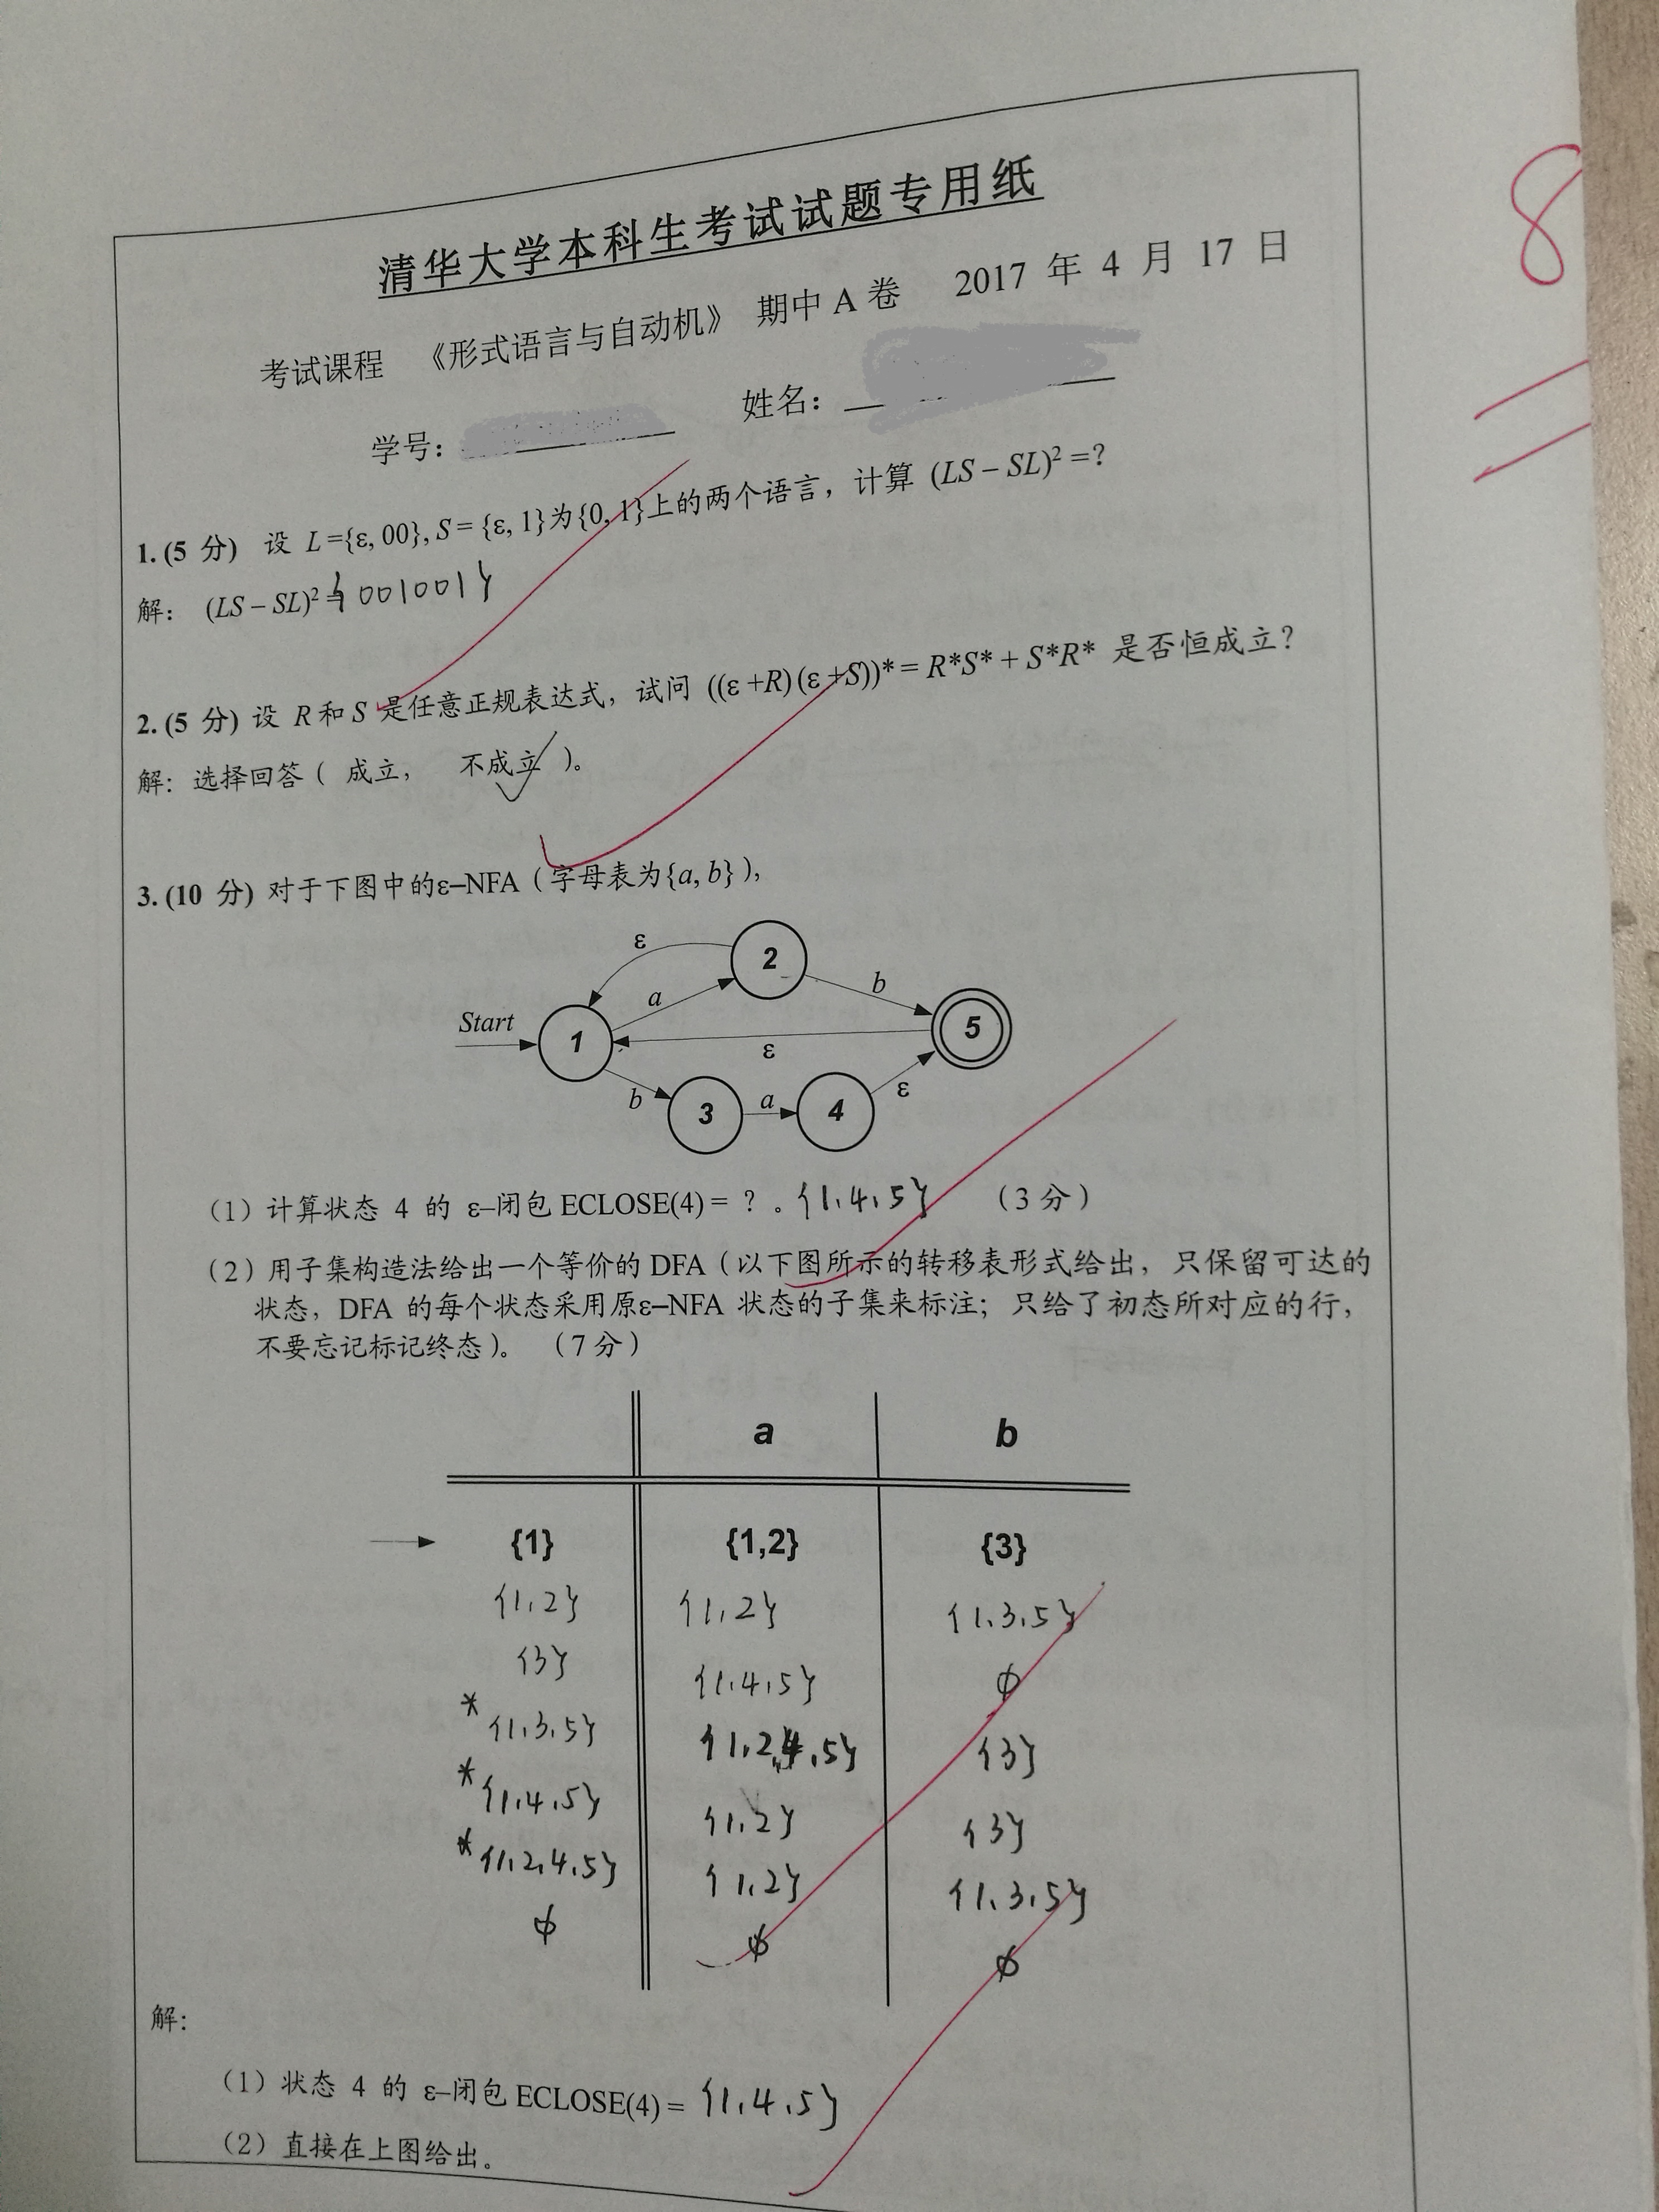 清华大学本科生考试试题专用纸
考试课程 《形式语言与自动机》 期中 A 卷 2017 年 4 月 17 日
学号： 姓名：
1. (5 分) 设 L={ε, 00}, S = {ε, 1}为{0, 1}上的两个语言，计算 (LS – SL)² =?
解： (LS – SL)² = {001001}
2. (5 分) 设 R和S 是任意正规表达式，试问 ((ε +R)(ε +S))* = R*S* + S*R* 是否恒成立？
解：选择回答（ 成立， 不成立 ✓ ）。
3. (10 分) 对于下图中的ε–NFA（字母表为{a, b}），
ε
2
b
a
Start
1
5
ε
b
3
a
4
ε
（1）计算状态 4 的 ε–闭包 ECLOSE(4) = ？。{1,4,5} （3 分）
（2）用子集构造法给出一个等价的 DFA（以下图所示的转移表形式给出，只保留可达的
状态，DFA 的每个状态采用原ε–NFA 状态的子集来标注；只给了初态所对应的行，
不要忘记标记终态）。（7 分）
a b
{1} {1,2} {3}
{1,2} {1,2} {1,3,5}
{3} {1,4,5} φ
* {1,3,5} {1,2,4,5} {3}
* {1,4,5} {1,2} {3}
* {1,2,4,5} {1,2} {1,3,5}
φ φ φ
解：
（1）状态 4 的 ε–闭包 ECLOSE(4) = {1,4,5}
（2）直接在上图给出。